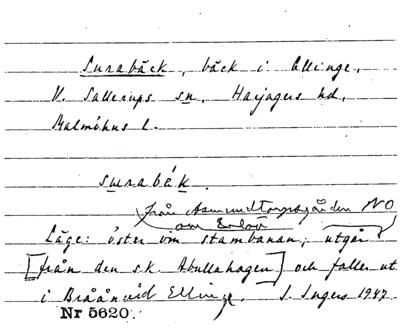 Surabäck, bäck i Ellinge,
V. Sallerups sn, Harjagers hd,
Malmöhus l.
surabäk.
från Asmundtorpsgården NO
om Erlöv
Läge: öster om stambanan; utgår
[från den s.k. Abullahagen] och faller ut
i Bråån vid Ellinge. I. Ingers 1947.
Nr 5620.